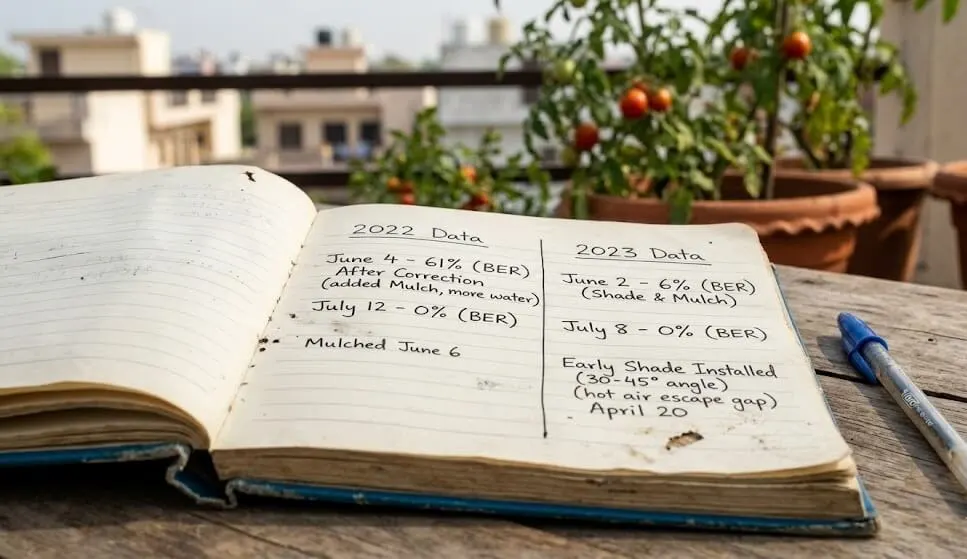 2022 Data
June 4 - 61% (BER)
After Correction
(added Mulch, more water)
July 12 - 0% (BER)
Mulched June 6
2023 Data
June 2 - 6% (BER)
(Shade & Mulch)
July 8 - 0% (BER)
Early Shade Installed
(30-45° angle)
(hot air escape gap)
April 20